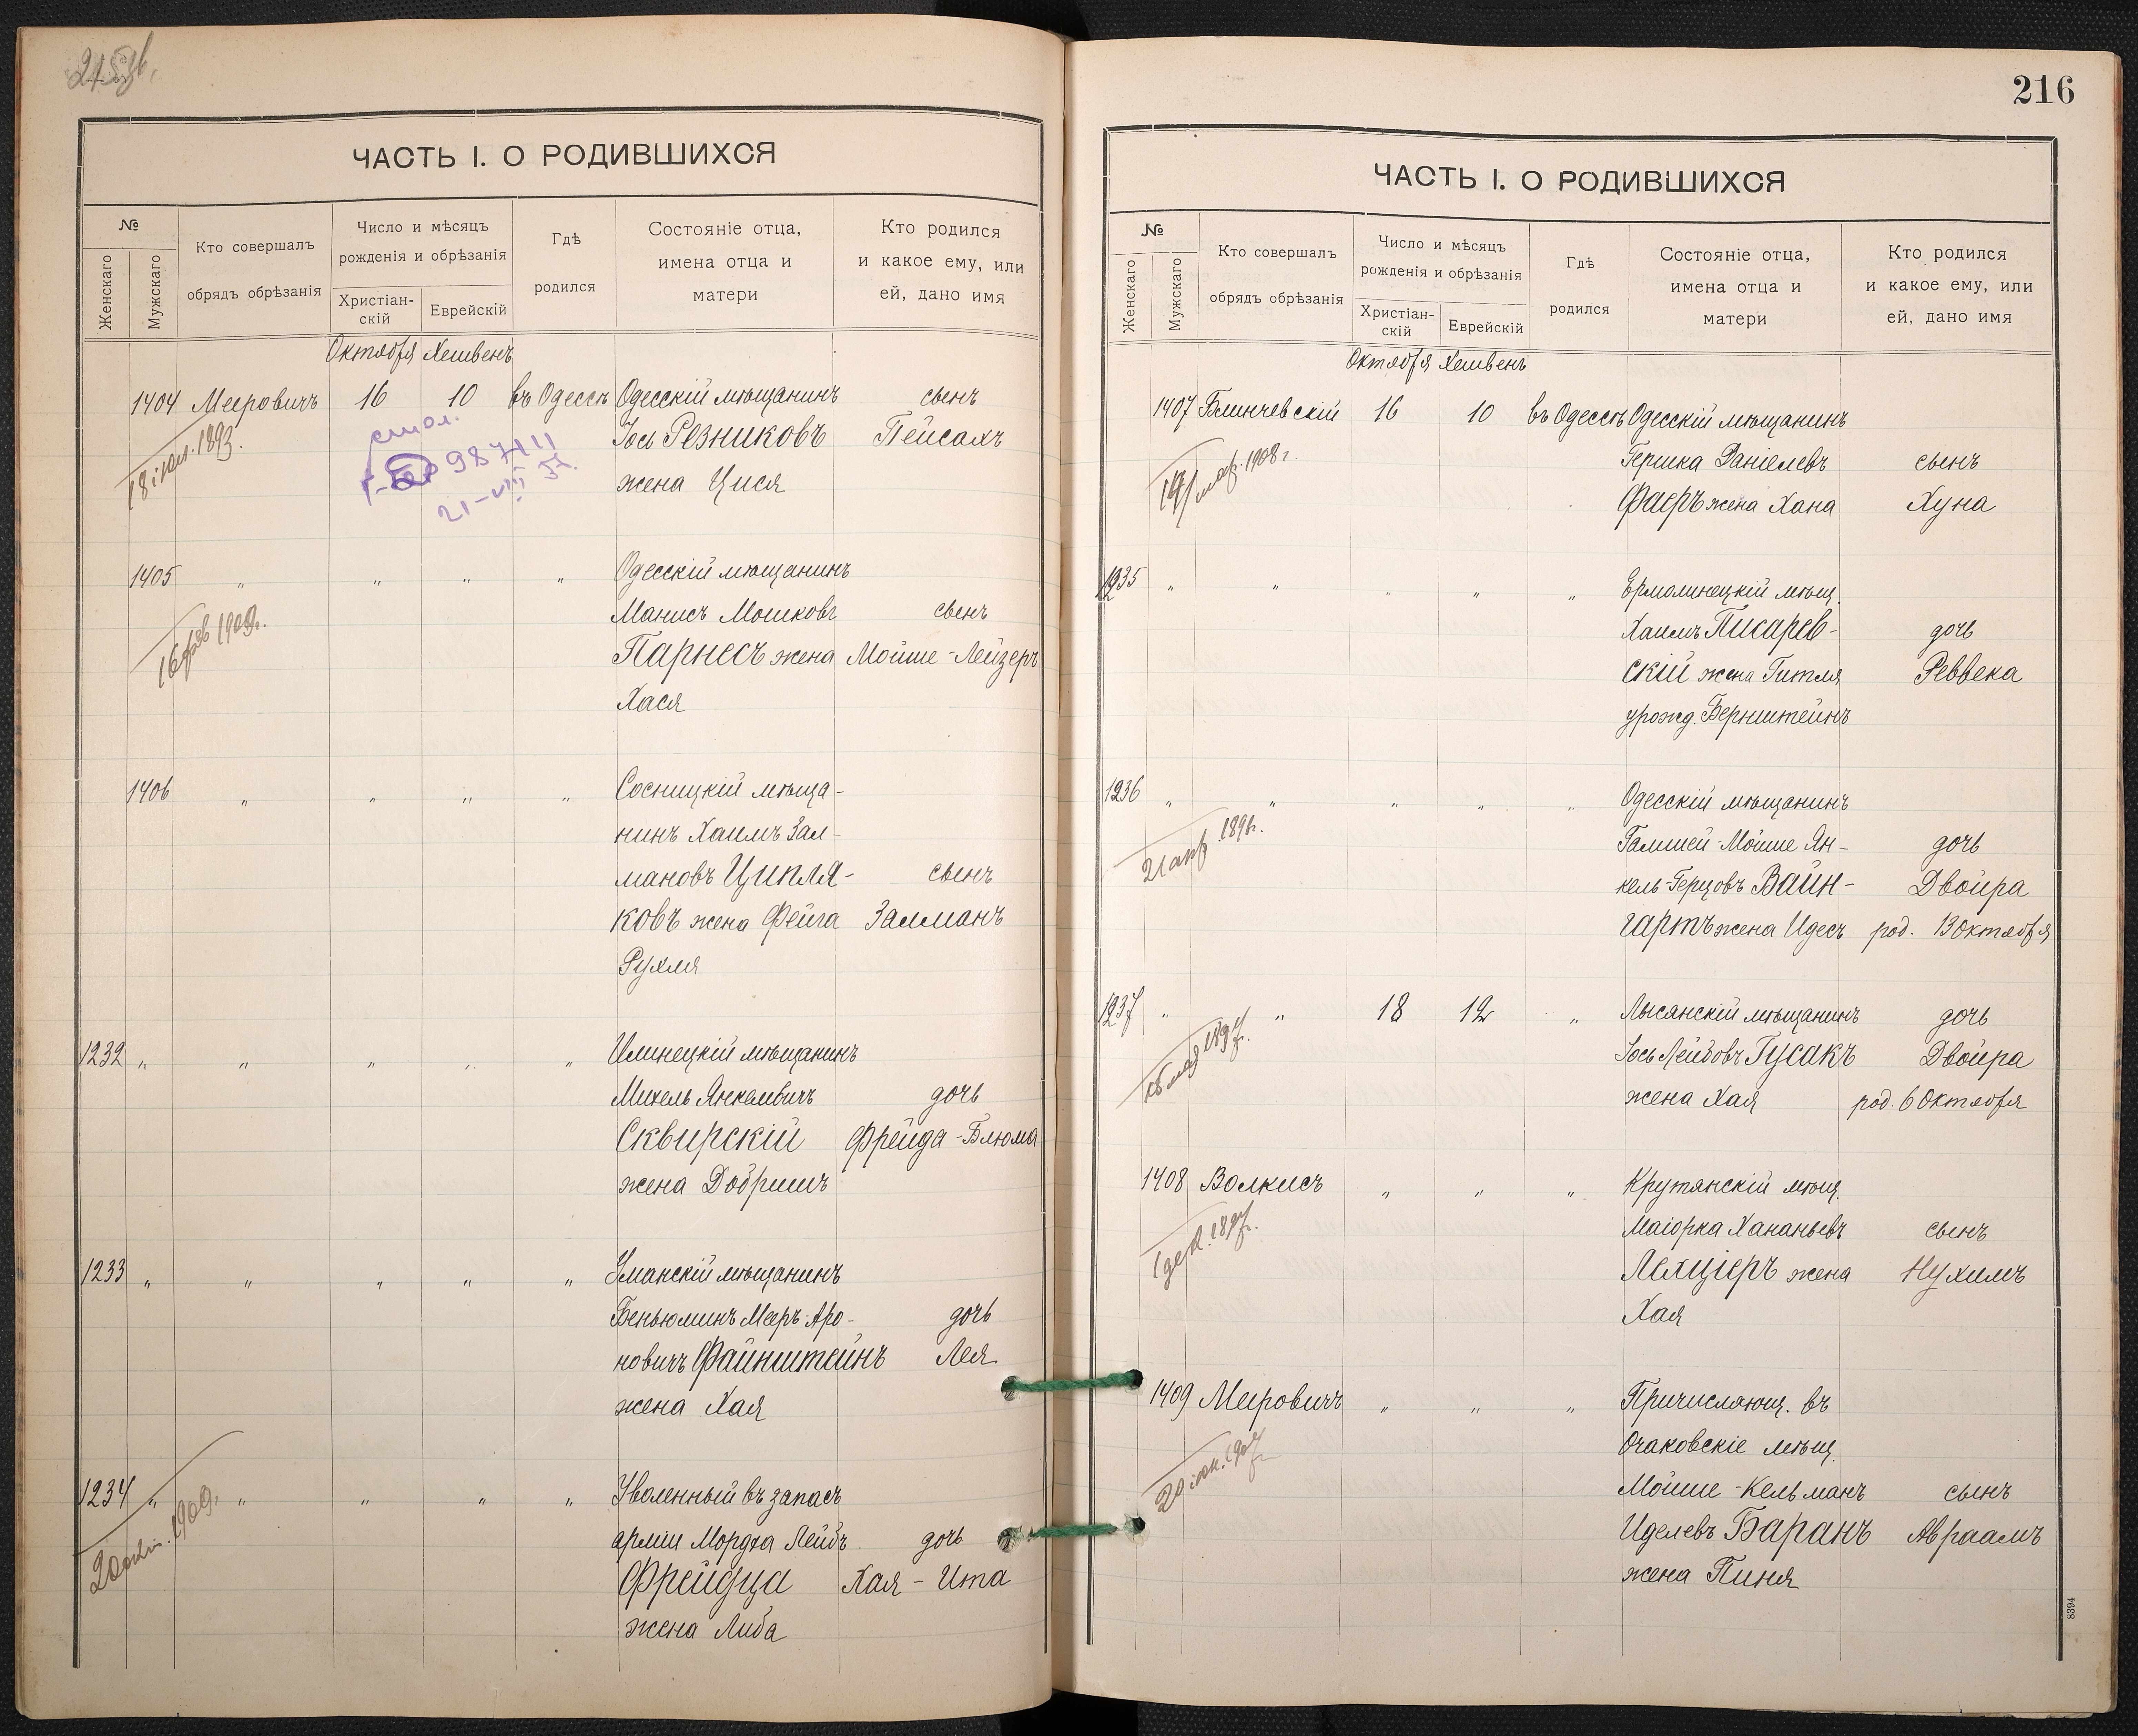 ЧАСТЬ I. О РОДИВШИХСЯ
№
Женскаго
Мужскаго
Кто совершалъ
обрядъ обрѣзанія
Число и мѣсяцъ
рожденія и обрѣзанія
Христіан-
скій
Еврейскій
Гдѣ
родился
Состояніе отца,
имена отца и
матери
Кто родился
и какое ему, или
ей, дано имя
Октября Хешвенъ
1404 Мееровичъ 16 10 въ Одессѣ Одесскій мѣщанинъ сынъ
Іось Резниковъ Пейсахъ
жена Цися
18 іюл. 1893.
21-VIII
1405 " " " " Одесскій мѣщанинъ
Манисъ Мошковъ сынъ
Парнесъ жена Мойше-Лейзеръ
Хася
1406 " " " " Сосницкій мѣща-
нинъ Хаимъ Зал-
мановъ Ципля- сынъ
ковъ жена Фейга Залманъ
Рухля
1232 " " " " " Илинецкій мѣщанинъ
Михель Янкелевичъ дочь
Сквирскій Фрейда-Блюма
жена Добришъ
1233 " " " " " Уманскій мѣщанинъ
Беньюминъ Мееръ Аро- дочь
новичъ Файнштейнъ Лея
жена Хая
1234 " " " " " Уволенный въ запасъ
арміи Мордха Лейбъ дочь
Фрейдца Хая-Ита
жена Либа
216
ЧАСТЬ I. О РОДИВШИХСЯ
№
Женскаго
Мужскаго
Кто совершалъ
обрядъ обрѣзанія
Число и мѣсяцъ
рожденія и обрѣзанія
Христіан-
скій
Еврейскій
Гдѣ
родился
Состояніе отца,
имена отца и
матери
Кто родился
и какое ему, или
ей, дано имя
Октября Хешвенъ
1407 Блинчевскій 16 10 въ Одессѣ Одесскій мѣщанинъ
Гершка Даніелевъ сынъ
Фаеръ жена Хана Хуна
19 мар. 1908 г.
1235 " " " " " Ермолинецкій мѣщ.
Хаимъ Писарев- дочь
скій жена Гитля Реввека
урожд. Бернштейнъ
1236 " " " " " Одесскій мѣщанинъ
Гамшей-Мойше Ян- дочь
кель-Герцовъ Вайн- Двойра
гартъ жена Идесъ род. 13 Октября
21 апр. 1896.
1237 " " 18 12 " Лысянскій мѣщанинъ дочь
Іось Лейбовъ Гусакъ Двойра
жена Хая род. 6 Октября
1408 Волкисъ " " " Крутянскій мѣщ.
Маіорка Хананьевъ сынъ
Лехціеръ жена Нухимъ
Хая
1 дек. 1897.
1409 Мееровичъ " " " Причисляющ. въ
Очаковскіе мѣщ.
Мойше-Кельманъ сынъ
Иделевъ Баранъ Авраамъ
жена Пиня
8394